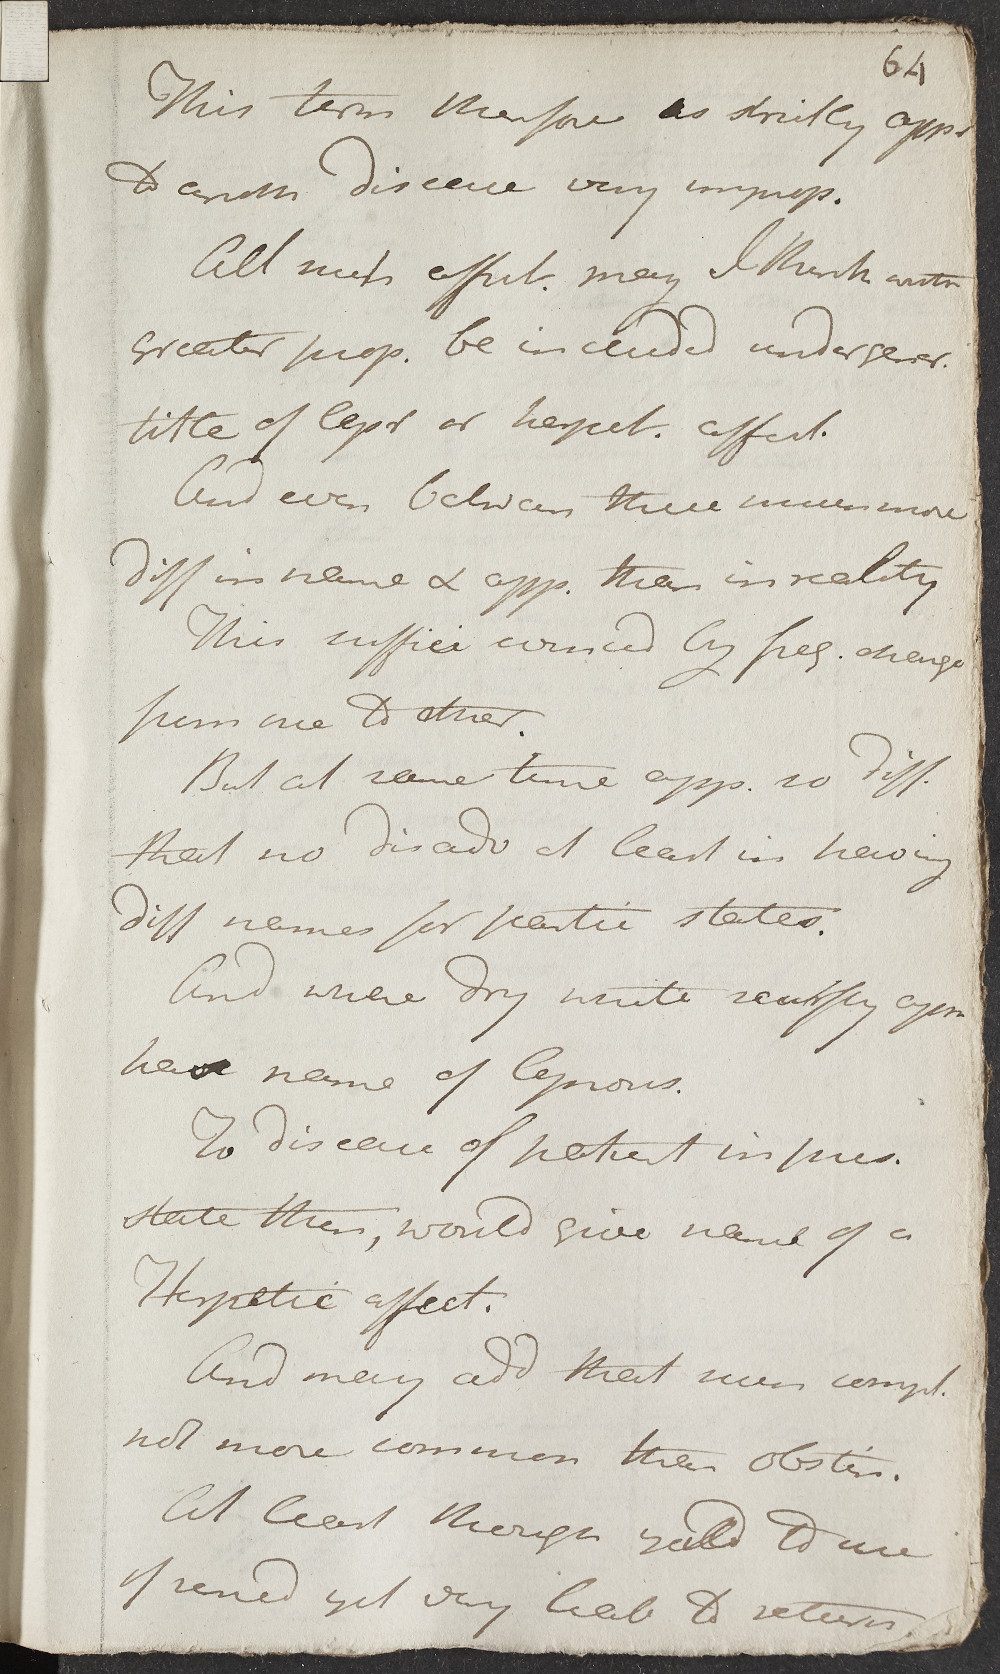 64
This term therefore as strictly app
to anoth disease very improp.
All such affect. may I think with
greater prop. be included under gener.
title of lepr or herpet. affect.
And even between these much more
diff in name & app. than in reality
This suffici evinced by freq. change
from one to other.
But at same time app. so diff.
that no disadv at least in having
diff names for partic states.
And where dry white scurfy appr
have name of leprous.
To disease of patient in pres.
state then, would give name of a
Herpetic affect.
And may add that such compl.
not more common than obstin.
At least though yield to use
of remed yet very liab to return.